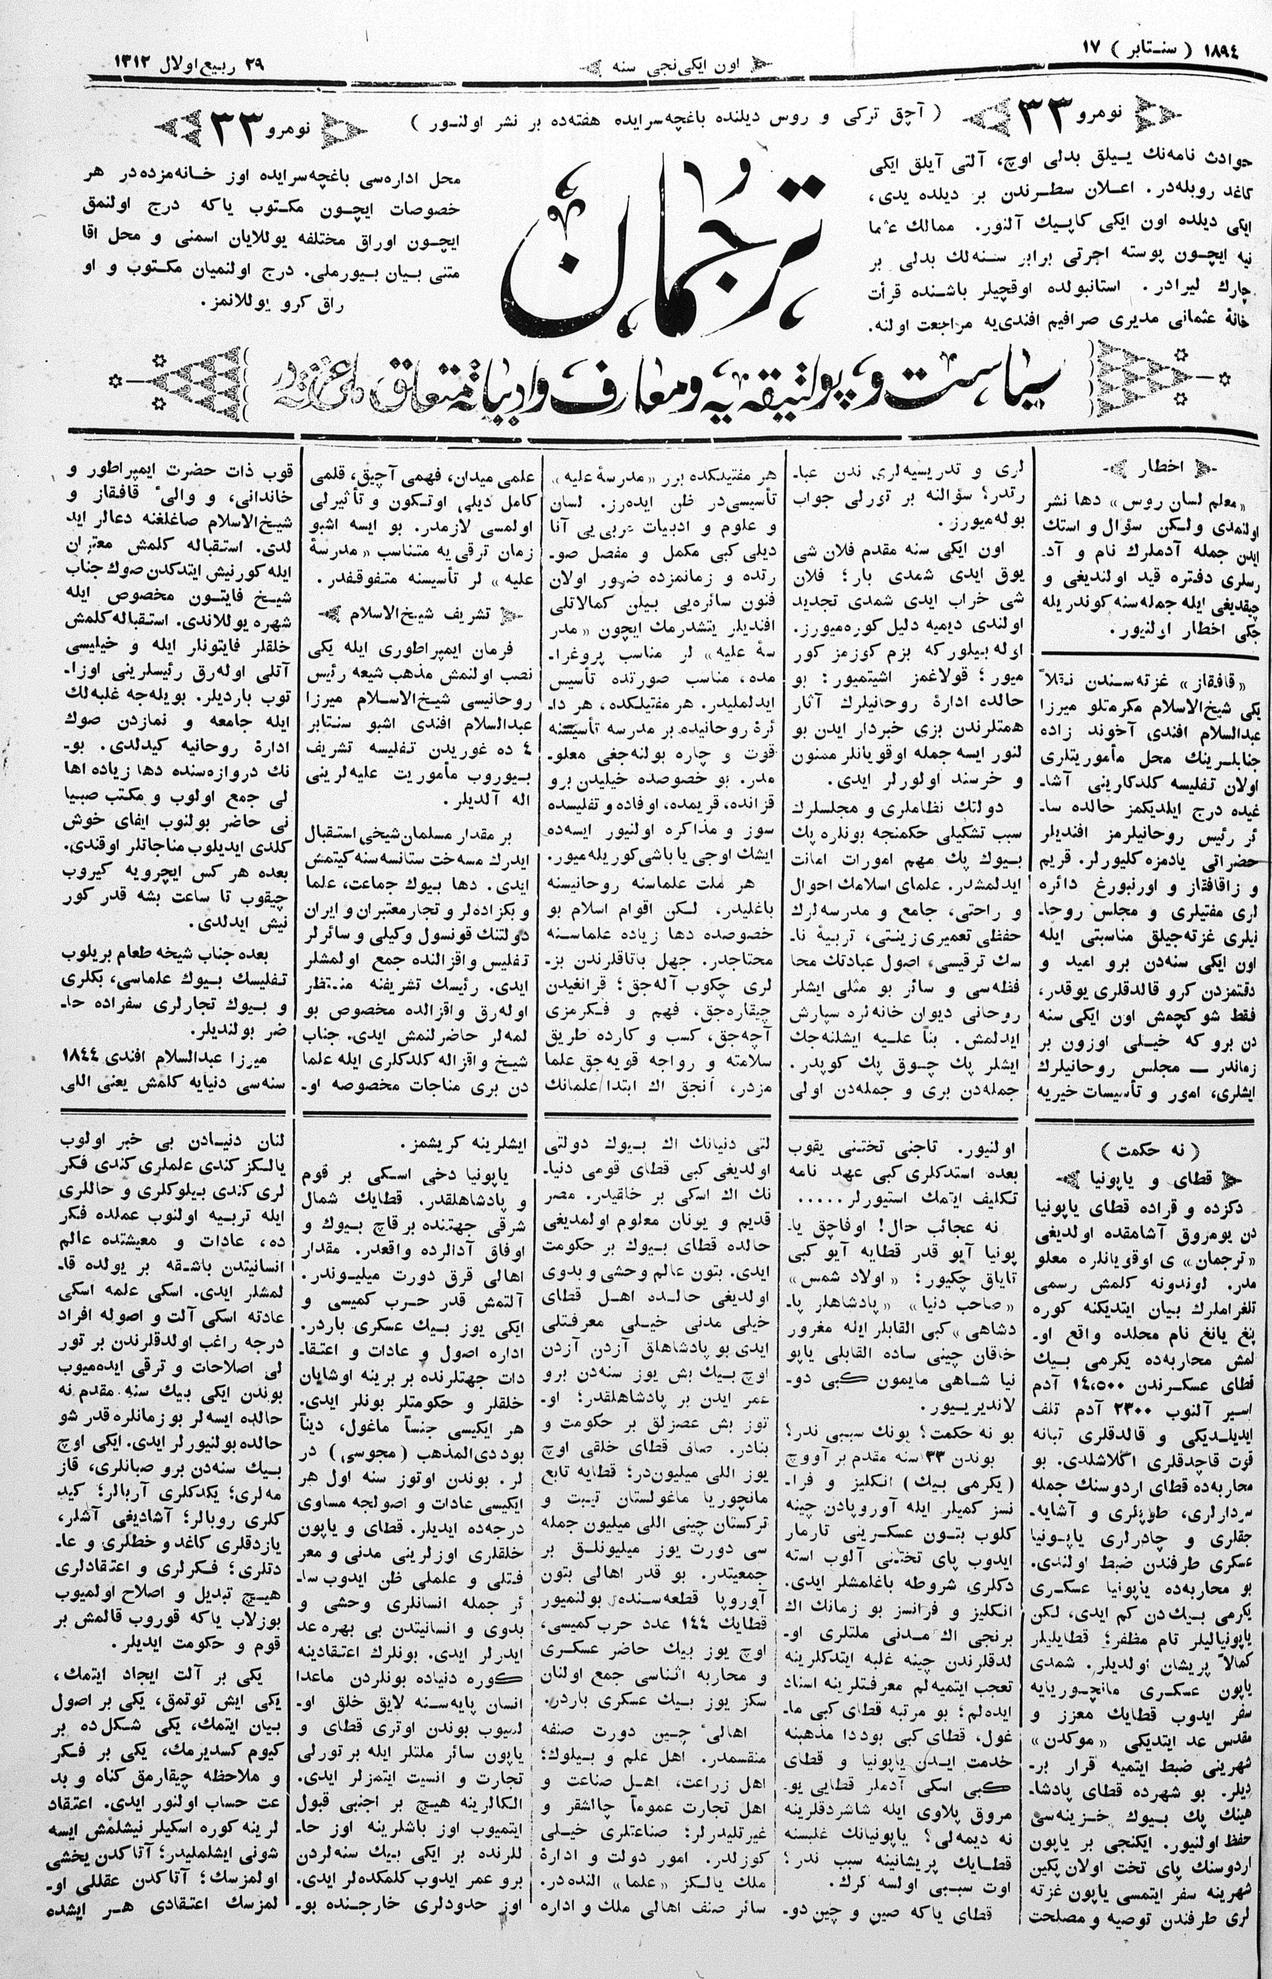 ١٨٩٤ ( سنـتابر ) ١٧
اون ایکی نجی سنه
٢٩ ربیع اولال ١٣١٢
نومرو ٣٣
( آچق ترکی و روس دیلنده باغچه سرایده هفته‌ده بر نشر اولنـور )
نومرو ٣٣
حوادث نامه‌نك یـیلق بدلی اوچ، آلتی آیلق ایکی
کاغد روبله‌در. اعـلان سطـرندن بر دیلده یدی،
ایکی دیلده اون ایکی کاپـیك آلنور. ممالك عثما
نیه ایچـون پوسته اجرتی برابر سنـه‌لك بدلی بر
چارك لیرادر. استانبولده اوقچیلر باشـنده قرأت
خانهٔ عثمانی مدیری صرافیم افندی‌یه مراجعت اولنه.
ترجمان
محل اداره‌سی باغچه‌سرایده اوز خـانه‌مزده‌در هر
خصوصات ایچـون مکـتوب یاکه درج اولنمق
ایچـون اوراق مختلفه یوللایان اسمنی و محل اقا
متنی بیان بـیورملی. درج اولنمیان مکـتوب و او
راق کرو یوللانمز.
سیاست و پولتیقه‌یه و معارف و ادبیاته متعلق
اخطار
«معلم لسان روس» دها نشر
اولنمدی ولـکن سؤال و استك
ایدن جمله آدملرك نام و آد.
رسلری دفتره قید اولندیغی و
چیقدیغی ایله جمله‌سنه کوندریله
جکی اخطار اولنیور.
«قافقاز» غزته‌سـندن نـقلاً
یکی شیخ‌الاسلام مکرمتلو میرزا
عبدالسلام افندی آخوند زاده
جنابلـرینك محل مأموریتلری
اولان تفلیسه کلدکارینی آشا-
غیده درج ایلدیکمز حالده سا-
ئر رئیس روحانیلرمز افندیلر
حضراتی یادمزه کلیورلر. قریم
و زاقافقاز و اورنبورغ دائره
لری مفتیلری و مجلس روحا-
نیلری غزته‌جیلق مناسبتی ایله
اون ایکی سنه‌دن برو امید و
دقتمزدن کرو قالدقلری یوقدر،
فقط شو کچمش اون ایکی سنه
دن برو که خیـلی اوزون بر
زماندر — مجلس روحانیلرك
ایشلری، امور و تأسیسات خیریه
لری و تدریسیه‌لری ندن عبا-
رتدر؟ سؤالنه بر تورلی جواب
بوله‌میورز.
اون ایکی سنه مقدم فلان شی
یوق ایدی شمدی بار؛ فلان
شی خراب ایدی شمدی تجدید
اولندی دیمیه دلیل کوره‌میورز.
اوله بیلور که بزم کوزمز کور
میور؛ قولاغمز اشیتمیور: بو
حالده ادارهٔ روحانیلرك آثار
همتلرندن بزی خبردار ایدن بو
لنور ایسه جمله اوقویانلر ممنون
و خرسند اولورلر ایدی.
دولتك نظاملری و مجلسلرك
سبب تشکیلی حکمنجه بونلره پك
بـیوك پك مهم امورات امانت
ایدلمشدر. علمای اسلامك احوال
و راحتی، جامع و مدرسه‌لرك
حفظی تعمیری زینتی، تربیهٔ نا-
سك ترقیسی، اصول عبادتك محا
فظه‌سی و سائر بو مثلی ایشلر
روحانی دیوان خانه‌لره سپارش
ایدلمش. بنأ علـیه ایشلنه‌جك
ایشلر پك چـوق پك کوپدر.
جمله‌دن بری و جمله‌دن اولی
هر مفتیلکده برر «مدرسهٔ علیه»
تأسیسی‌در ظن ایده‌رز. لسان
و علوم و ادبیات عربی‌یی آنا
دیلی کبی مکمل و مفصل صو-
رتده و زمانمزده ضرور اولان
فنون سائره‌یی بیلن کمالاتلی
افندیلر یتشدرمك ایچون «مدر
سهٔ علیه» لر مناسب پروغرا-
مده، مناسب صورتده تأسیس
ایدلملیدر. هر مفتیلکده، هر دا-
ئرهٔ روحانیه‌ده بر مدرسه تأسیسنه
قوت و چاره بولنه‌جغی معلو-
مدر. بو خصوصده خیلیدن برو
قزانده، قریمده، اوفاده و تفلیسده
سوز و مذاکره اولنیور ایسه‌ده
ایشك اوجی یا باشی کوریله‌میور.
هر ملت علماسنه روحانیسنه
باغلیدر، لـکن اقوام اسلام بو
خصوصده دها زیاده علماسنه
محتاجدر. جهل باتاقلرندن بز-
لری چکوب آله‌جق؛ قرانغیدن
چیقاره‌جق، فهم و فـکرمزی
آچه‌جق، کسب و کارده طریق
سلامته و رواجه قویه‌جق علما
مزدر، آنجق اك ابتدا علمانك
علمی میدان، فهمی آچیق، قلمی
کامل دیلی اوتکون و تأثیرلی
اولمسی لازمدر. بو ایسه اشبو
زمان ترقی‌یه متناسب «مدرسهٔ
علیه» لر تأسیسنه متفوقفدر.
تشریف شیخ‌الاسلام
فرمان ایمپراطوری ایله یکی
نصب اولنمش مذهب شیعه رئیس
روحانیسی شیخ‌الاسـلام میرزا
عبدالسلام افندی اشبو سنتابر
٤ ده غوریدن تـفلیسه تشریف
بـیوروب مأموریت علیه‌لرینی
اله آلدیلر.
بر مقدار مسلمان شیخی استقبال
ایدرك مسه‌خت ستانسه سنه کیتمش
ایدی. دها بـیوك جماعت، علما
و بکزاده‌لر و تجار معتبران و ایران
دولتنك قونسول وکیلی و سائرلر
تفلیس واقزالنده جمع اولمشلر
ایدی. رئیسك تشریفنه منـتظر
اوله‌رق واقزالده مخصوص بو
لمه‌لر حاضرلنمش ایدی. جناب
شیخ واقزاله کلدکلری ایله علما
دن بری مناجات مخصوصه او-
قوب ذات حضرت ایمپراطور و
خاندانی، و والیٔ قافـقاز و
شیخ‌الاسلام صاغلغنه دعالر اید
لدی. استقباله کلمش معتبران
ایله کورنیش ایتدکدن صوك جناب
شیـخ فایتـون مخصوص ایله
شهره یوللاندی. استقباله کلمش
خلقلر فایتونلر ایله و خیلیسی
آتلی اوله‌رق رئیسلرینی اوزا-
توب باردیلر. بویله‌جه غلبه‌لك
ایله جامعه و نمازدن صوك
ادارهٔ روحانیه کیدلدی. بو-
نك دروازه‌سنده دها زیاده اها
لی جمع اولوب و مکتب صبیا
نی حاضر بولنوب ایفای خوش
کلدی ایدیلوب مناجاتلر اوقندی.
بعده هر کس ایچرویه کیروب
چیقوب تا ساعت بشه قدر کور
نیش ایدلدی.
بعده جناب شیخه طعام بریلوب
تـفلیسك بـیوك علماسی، بکلری
و بـیوك تجارلری سفراده حا-
ضر بولندیلر.
میرزا عبدالسلام افندی ١٨٤٤
سنه‌سی دنیایه کلمش یعنی اللی
( نه حکمت )
قطای و یاپونیا
دکزده و قراده قطای یاپونیا
دن یومروق آشامقده اولدیغی
«ترجمان»ی اوقویانلره معلو
مدر. لوندونه کلمش رسمی
تلغراملرك بیان ایتدیکنه کوره
پنغ یانغ نام محلده واقع او-
لمش محاربه‌ده یکرمی بـیك
قطای عسکـرندن ١٤،٥٠٠ آدم
اسیر آلنوب ٢٣٠٠ آدم تلف
ایدیلـدیکی و قالدقلری تبانه
قوت قاچدقلری اکلاشلدی. بو
محاربه‌ده قطای اردوسنك جمله
سردارلری، طوپلری و آشایه-
جقلری و چادرلری یاپـونیا
عسکری طرفندن ضبط اولندی.
بو محاربه‌ده یاپونیا عسکـری
یکرمی بـیك‌دن کم ایدی، لکن
یاپونیالیلر تام مظفر؛ قطایلیلر
کمالاً پریشان اولدیلر. شمدی
یاپون عسکـری مانچـوریایه
سفر ایدوب قطایك معزز و
مقدس عد ایتدیکی «موکدن»
شهرینی ضبط ایتمیه قرار بر-
دیلر. بو شهرده قطای پادشا-
هینك پك بـیوك خـزینه‌سی
حفظ اولنیور. ایکنجی بر یاپون
اردوسنك پای تخت اولان پکین
شهرینه سفر ایتمسی یاپون غزته
لری طرفندن توصیه و مصلحت
اولنیور. تاجنی تختـنی یقوب
بعده استدکلری کبی عهد نامه
تکلیف ایتمك استیورلر.....
نه عجائب حال! اوفاجق یا-
پونیا آیو قدر قطایه آیو کبی
تایاق چکیور: «اولاد شمس»
«صاحب دنیا» «پادشاهلر پا-
دشاهی» کبی القابلر ایله مغرور
خاقان چینی ساده القابلی یاپو
نیا شاهی مایمون کـبی دو-
لاندیریـیور.
بو نه حکمت؟ بونك سببی ندر؟
بوندن ٣٣ سنه مقدم بر آووچ
(یکرمی بـیك) انکلیز و فرا-
نسز کمیلر ایله آوروپادن چینه
کلوب بتـون عسکـرینی تارمار
ایدوب پای تختـنی آلوب استه
دکلری شروطه باغلمشلر ایدی.
انکلیز و فرانسز بو زمانك اك
برنجی اك مـدنی ملتلری او-
لدقلرندن چینه غلبه ایتدکلرینه
تعجب ایتمیه‌لم معرفتلرینه اسناد
ایده‌لم؛ بو مرتبه قطای کبی ما-
غول، قطای کبی بوددا مذهبنه
خدمت ایـدن یاپونیا و قطای
کـبی اسکی آدملر قطایی یو-
مروق پلاوی ایله شاشردقلرینه
نه دیمه‌لی؟ یاپونیانك غلبسنه
قطـایك پریشانینه سبب ندر؟
اوت سبـبی اولسه کرك.
قطای یاکه صین و چین دو-
لتی دنیانك اك بـیوك دولتی
اولدیغی کبی قطای قومی دنیا-
نك اك اسکی بر خلقیدر. مصر
قدیم و یونان معلوم اولمدیغی
حالده قطای بـیوك بر حکومت
ایدی. بتون عالم وحشی و بدوی
اولدیغی حالـده اهـل قطای
خیلی مدنی خیـلی معرفـتلی
ایدی بو پادشاهلق آزدن آزدن
اوچ بـیك بش یوز سنه‌دن برو
عمر ایدن بر پادشاهلقدر؛ او-
توز بش عصرلق بر حکومت و
بنادر. صاف قطای خلقی اوچ
یوز اللی میلیون‌در؛ قطایه تابع
مانچوریا ماغولستان تیبت و
ترکستان چینی اللی میلیون جمله
سی دورت یوز میلیونلـق بر
جمعیتدر. بو قدر اهالی بتون
آوروپا قطعه‌سنده‌ده بولنمیور
قطایك ١٤٤ عدد حرب کمیسی،
اوچ یوز بـیك حاضر عسکـری
و محاربه اثناسی جمع اولنان
سکز یوز بـیك عسکری باردر.
اهالیٔ چـین دورت صنفه
منقسمدر. اهل علم و بـیلوك؛
اهل زراعت، اهـل صناعت و
اهل تجارت عموماً چالشقر و
غیرتلیدرلر: صناعتلری خیـلی
کوزلدر. امور دولت و ادارهٔ
ملك یالـکز «علما» النده‌در.
سائر صنف اهالی ملك و اداره
ایشلرینه کریشمز.
یاپونیا دخی اسـکی بر قوم
و پادشاهلقدر. قطایك شمال
شرقی جهتنده بر قاچ بـیوك و
اوفاق آدالرده واقعدر. مقدار
اهالی قرق دورت میلیـوندر.
آلتمش قدر حـرب کمیسی و
ایکی یوز بـیك عسکری باردر.
اداره اصول و عادات و اعتقا-
دات جهتلرنده بر برینه اوشایان
خلقلر و حکومتلر بونلر ایدی.
هر ایکیسی جنسأ ماغول، دینأ
بوددی‌المذهب (مجوسی) در
لر. بوندن اوتوز سنه اول هر
ایکیسی عادات و اصولجه مساوی
درجه‌ده ایدیلر. قطای و یاپون
خلقلری اوزلرینی مدنی و معر
فتلی و علملی ظن ایدوب سا-
ئر جمله انسانلری وحشی و
بدوی و انسانیتدن بی بهره عد
ایدرلر ایدی. بونلرك اعتقادینه
کـوره دنیاده بونلردن ماعدا
انسان پایه‌سـنه لایق خلق او-
لمیوب بوندن اوتری قطای و
یاپون سائر ملتلر ایله بر تورلی
تجارت و انسیت ایتمزلر ایدی.
الکالرینه هیـچ بر اجنبی قبول
ایتمیوب اوز باشلرینه اوز حا-
للرنده بر ایکی بـیك سنه‌لردن
برو عمر ایدوب کلمکده‌لر ایدی.
اوز حدودلری خارجـنده بو-
لنان دنیـادن بی خبر اولوب
یالـکز کندی علملری کندی فـکر
لری کندی بیلوکلری و حاللری
ایله تربـیه اولنوب عملده فکر
ده، عادات و معیشتده عالم
انسانیتدن باشـقه بر یولده قا-
لمشلر ایدی. اسکی علمه اسکی
عادته اسکی آلت و اصوله افراد
درجه راغب اولدقلرندن بر تور
لی اصلاحات و ترقی ایده‌میوب
بوندن ایکی بیك سنه مقدم نه
حالده ایسه‌لر بو زمانلره قدر شو
حالده بولنیورلر ایدی. ایکی اوچ
بـیك سنه‌دن برو صبانلری، قاز
مه‌لری؛ یکدکلری آربالر؛ کید
کلری روبالر؛ آشادیغی آشلر،
یازدقلری کاغد و خطلری و عا-
دتلری؛ فـکرلری و اعتقادلری
هیـچ تبدیل و اصلاح اولمیوب
بوزلاب یاکه قوروب قالمش بر
قوم و حکومت ایدیلر.
یکی بر آلت ایجاد ایتمك،
یکی ایش توتمق، یکی بر اصول
بیان ایتمك، یکی شـکل ده بر
کیوم کسدیرمك، یکی بر فـکر
و ملاحظه چیقارمق کناه و بد
عت حساب اولنور ایدی. اعتقاد
لرینه کوره اسکیلر نیشلمش ایسه
شونی ایشلملیدر؛ آتاکدن یخشی
اولمزسك؛ آتاکدن عقللی او-
لمزسك اعتقادی هـر ایشده